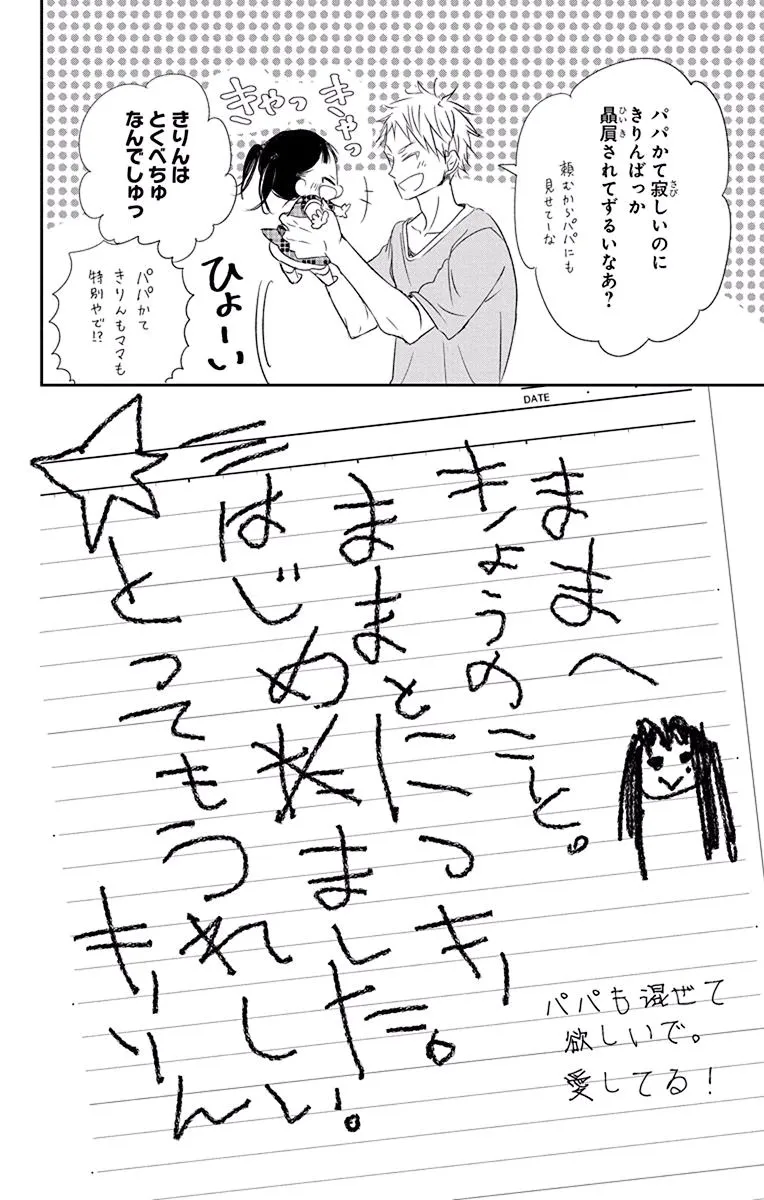 パパかて寂しいのに
さび
きりんばっか
贔屓されてずるいなあ?
ひいき
頼むからパパにも
見せてーな
きゃっ
きゃっ
ひょーい
きりんは
とくべちゅ
なんでしゅっ
パパかて
きりんもママも
特別やで!?
DATE
ままへ
きょうのこと。
ままとにっき
はじめれました。
とってもうれしい。
きりん
パパも混ぜて
欲しいで。
愛してる!